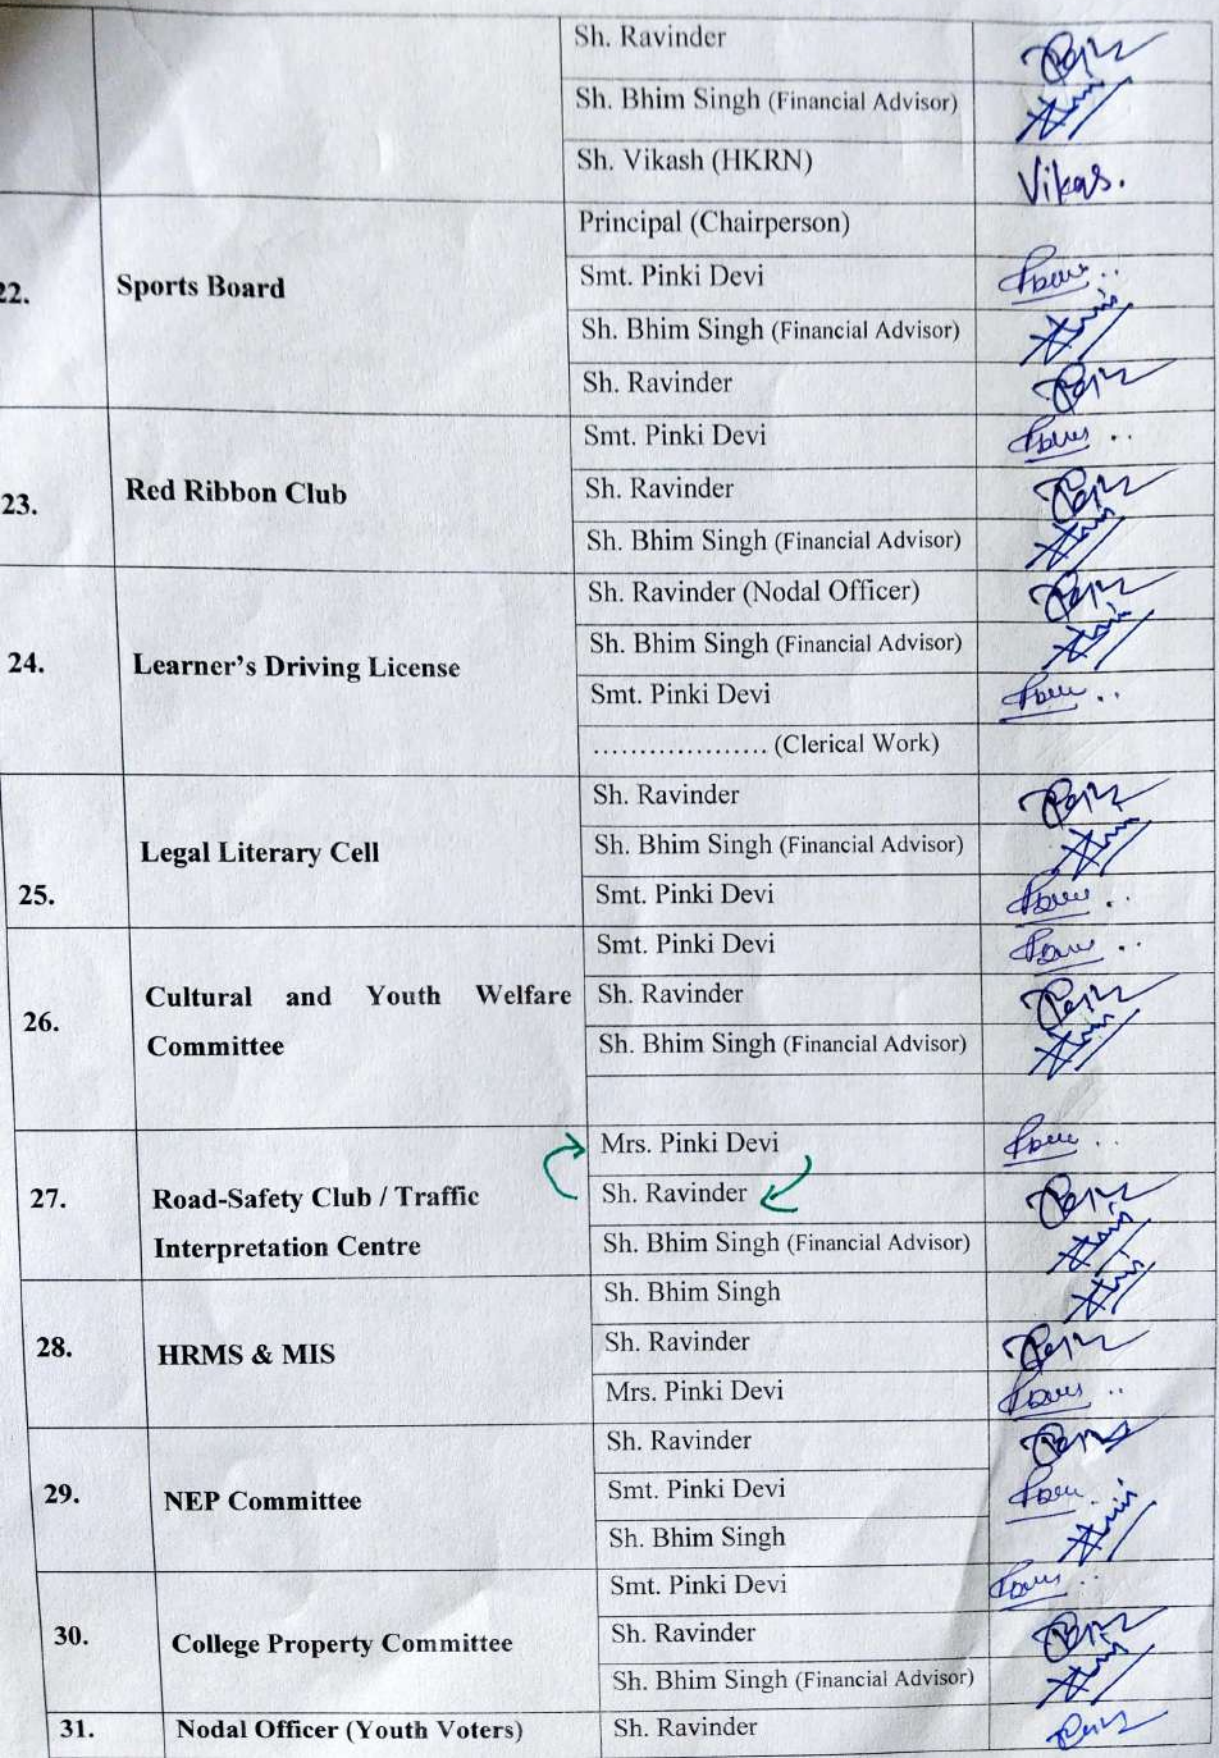 Sh. Ravinder
Sh. Bhim Singh (Financial Advisor)
Sh. Vikash (HKRN) Vikas.
22. Sports Board
Principal (Chairperson)
Smt. Pinki Devi
Sh. Bhim Singh (Financial Advisor)
Sh. Ravinder
23. Red Ribbon Club
Smt. Pinki Devi
Sh. Ravinder
Sh. Bhim Singh (Financial Advisor)
24. Learner's Driving License
Sh. Ravinder (Nodal Officer)
Sh. Bhim Singh (Financial Advisor)
Smt. Pinki Devi
.................. (Clerical Work)
25. Legal Literary Cell
Sh. Ravinder
Sh. Bhim Singh (Financial Advisor)
Smt. Pinki Devi
26. Cultural and Youth Welfare
Committee
Smt. Pinki Devi
Sh. Ravinder
Sh. Bhim Singh (Financial Advisor)
27. Road-Safety Club / Traffic
Interpretation Centre
Mrs. Pinki Devi
Sh. Ravinder
Sh. Bhim Singh (Financial Advisor)
28. HRMS & MIS
Sh. Bhim Singh
Sh. Ravinder
Mrs. Pinki Devi
29. NEP Committee
Sh. Ravinder
Smt. Pinki Devi
Sh. Bhim Singh
30. College Property Committee
Smt. Pinki Devi
Sh. Ravinder
Sh. Bhim Singh (Financial Advisor)
31. Nodal Officer (Youth Voters)
Sh. Ravinder